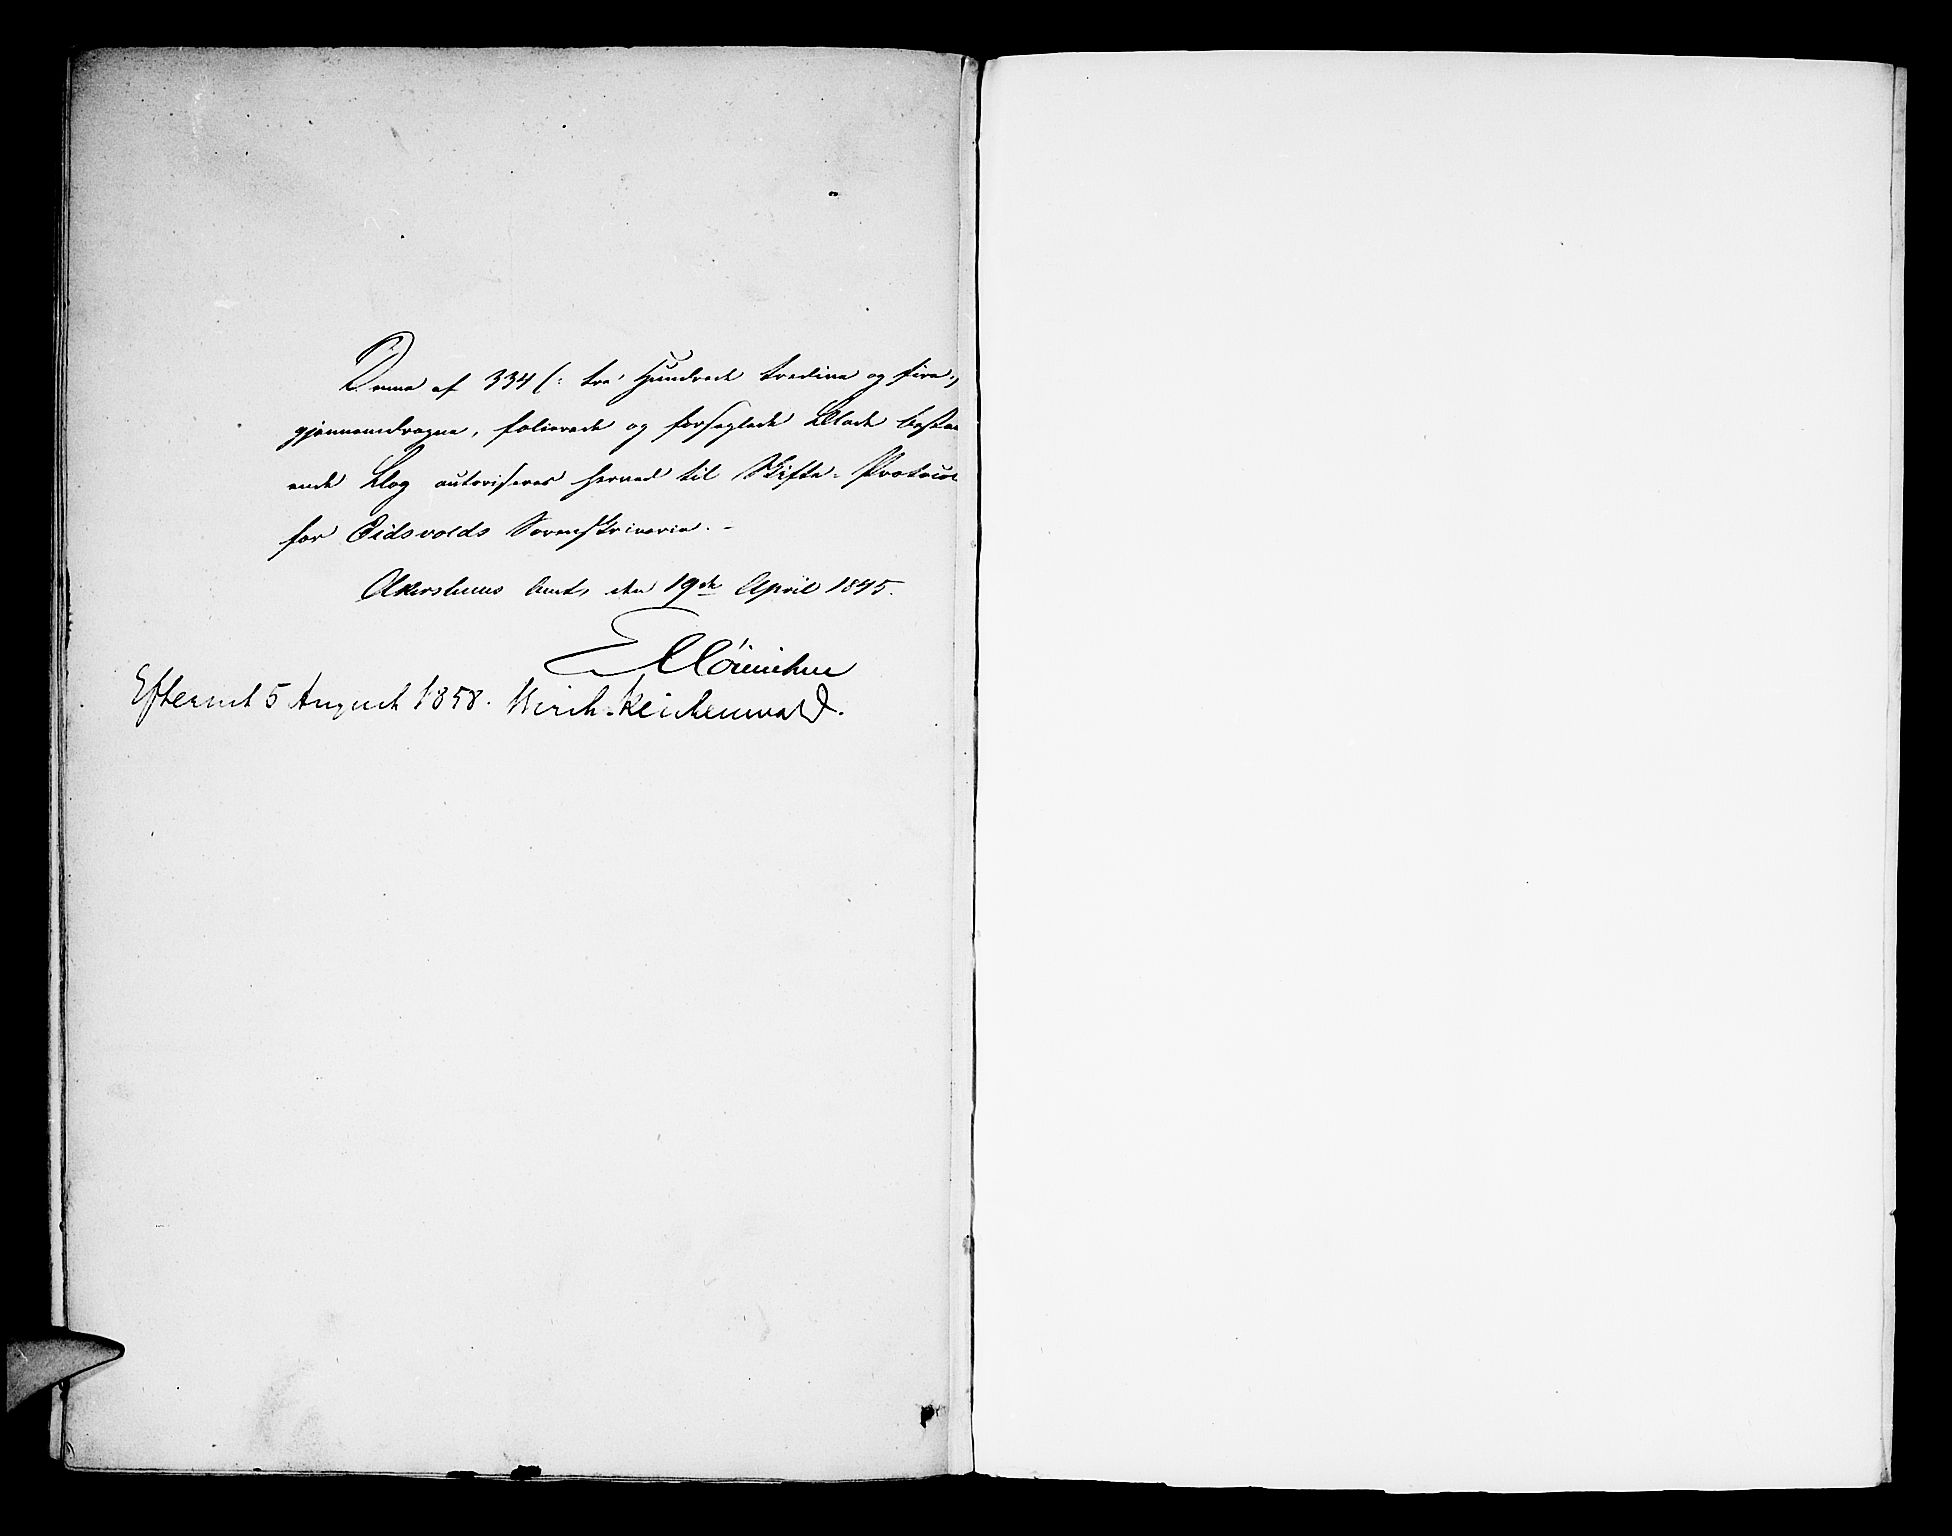 Denne af 334 /: tre Hundrede tredive og fire :/
gjennemdragne, folierede og forseglede Blade bestaa
ende Bog autoriseres herved til Skifte-Protocol
for Eidsvolds Sorenskriverie. -
Akershuus Amt, den 19de April 1845.
Efterseet 5 August 1858. Hirsch-Reichenwald.